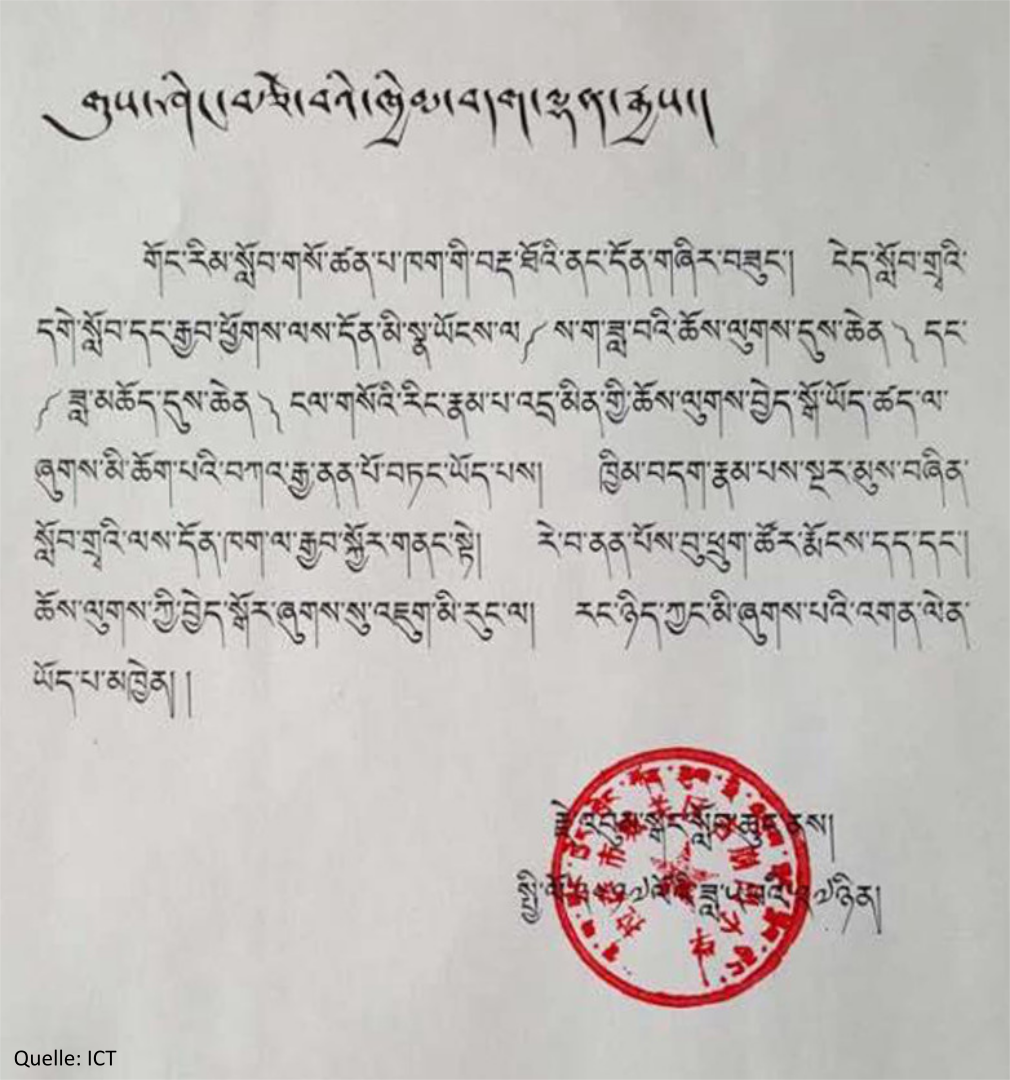 གོང་རིམ་སློབ་གསོ་ཚན་པ་ཁག་གི་བརྡ་ཐོའི་ནང་དོན་གཞིར་བཟུང་། ངེད་སློབ་གྲྭའི་
དགེ་སློབ་དང་རྒྱབ་ཕྱོགས་ལས་དོན་མི་སྣ་ཡོངས་ལ་(ས་ག་ཟླ་བའི་ཆོས་ལུགས་དུས་ཆེན)དང་
(ཟླ་མཆོད་དུས་ཆེན)ངལ་གསོའི་རིང་རྣམ་པ་འདྲ་མིན་གྱི་ཆོས་ལུགས་བྱེད་སྒོ་ཡོད་ཚད་ལ་
ཞུགས་མི་ཆོག་པའི་བཀའ་རྒྱ་ནན་པོ་བཏང་ཡོད་པས། ཁྱིམ་བདག་རྣམ་པས་སྔར་མུས་བཞིན་
སློབ་གྲྭའི་ལས་དོན་ཁག་ལ་རྒྱབ་སྐྱོར་གནང་སྟེ། རེ་བ་ནན་པོས་བུ་ཕྲུག་ཚོར་རྨོངས་དད་དང་།
ཆོས་ལུགས་ཀྱི་བྱེད་སྒོར་ཞུགས་སུ་འཇུག་མི་རུང་ལ། རང་ཉིད་ཀྱང་མི་ཞུགས་པའི་འགན་ལེན་
ཡོད་པ་མཁྱེན། །
སློབ་ཆུང་ནས།
Quelle: ICT